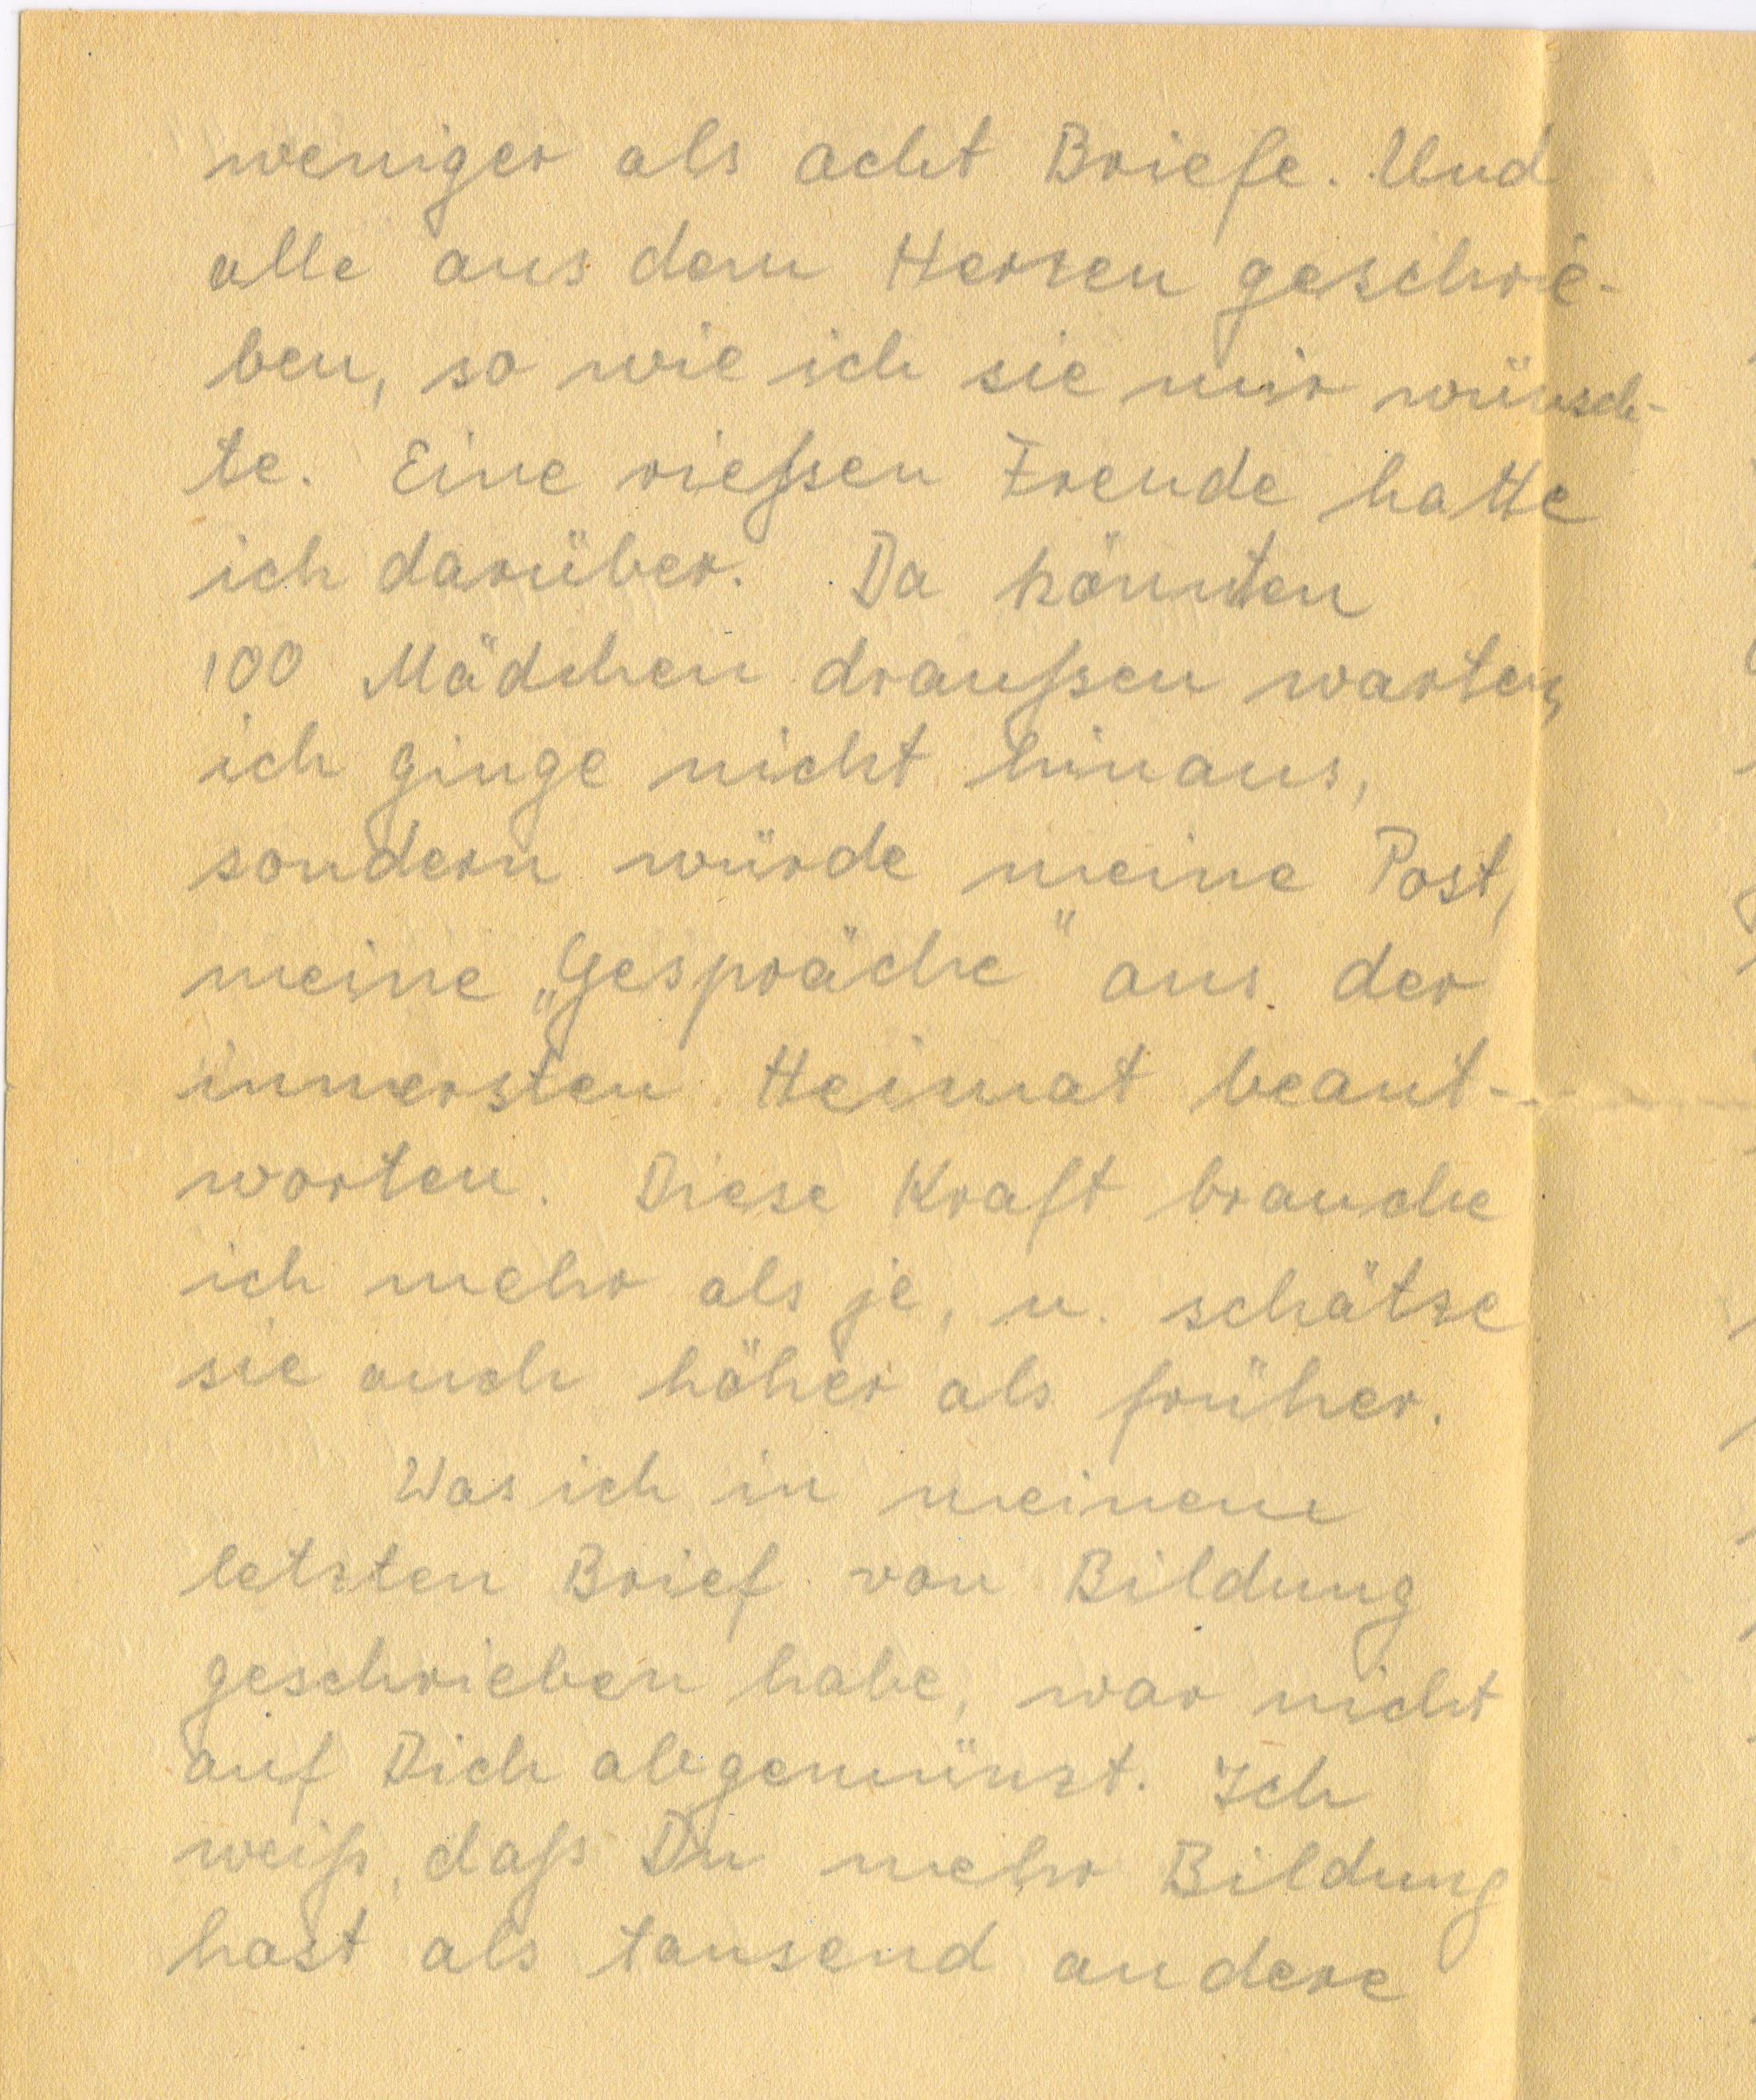 weniger als acht Briefe. Und
alle aus dem Herzen geschrie-
ben, so wie ich sie mir wünsch-
te. Eine rießsen Freude hatte
ich darüber. Da könnten
100 Mädchen draußsen warten,
ich ginge nicht hinaus,
sondern würde meine Post,
meine „Gespräche" aus der
innersten Heimat beant-
worten. Diese Kraft brauche
ich mehr als je, u. schätze
sie auch höher als früher.
Was ich in meinem
letzten Brief von Bildung
geschrieben habe, war nicht
auf Dich abgemünzt. Ich
weiß, daß Du mehr Bildung
hast als tausend andere